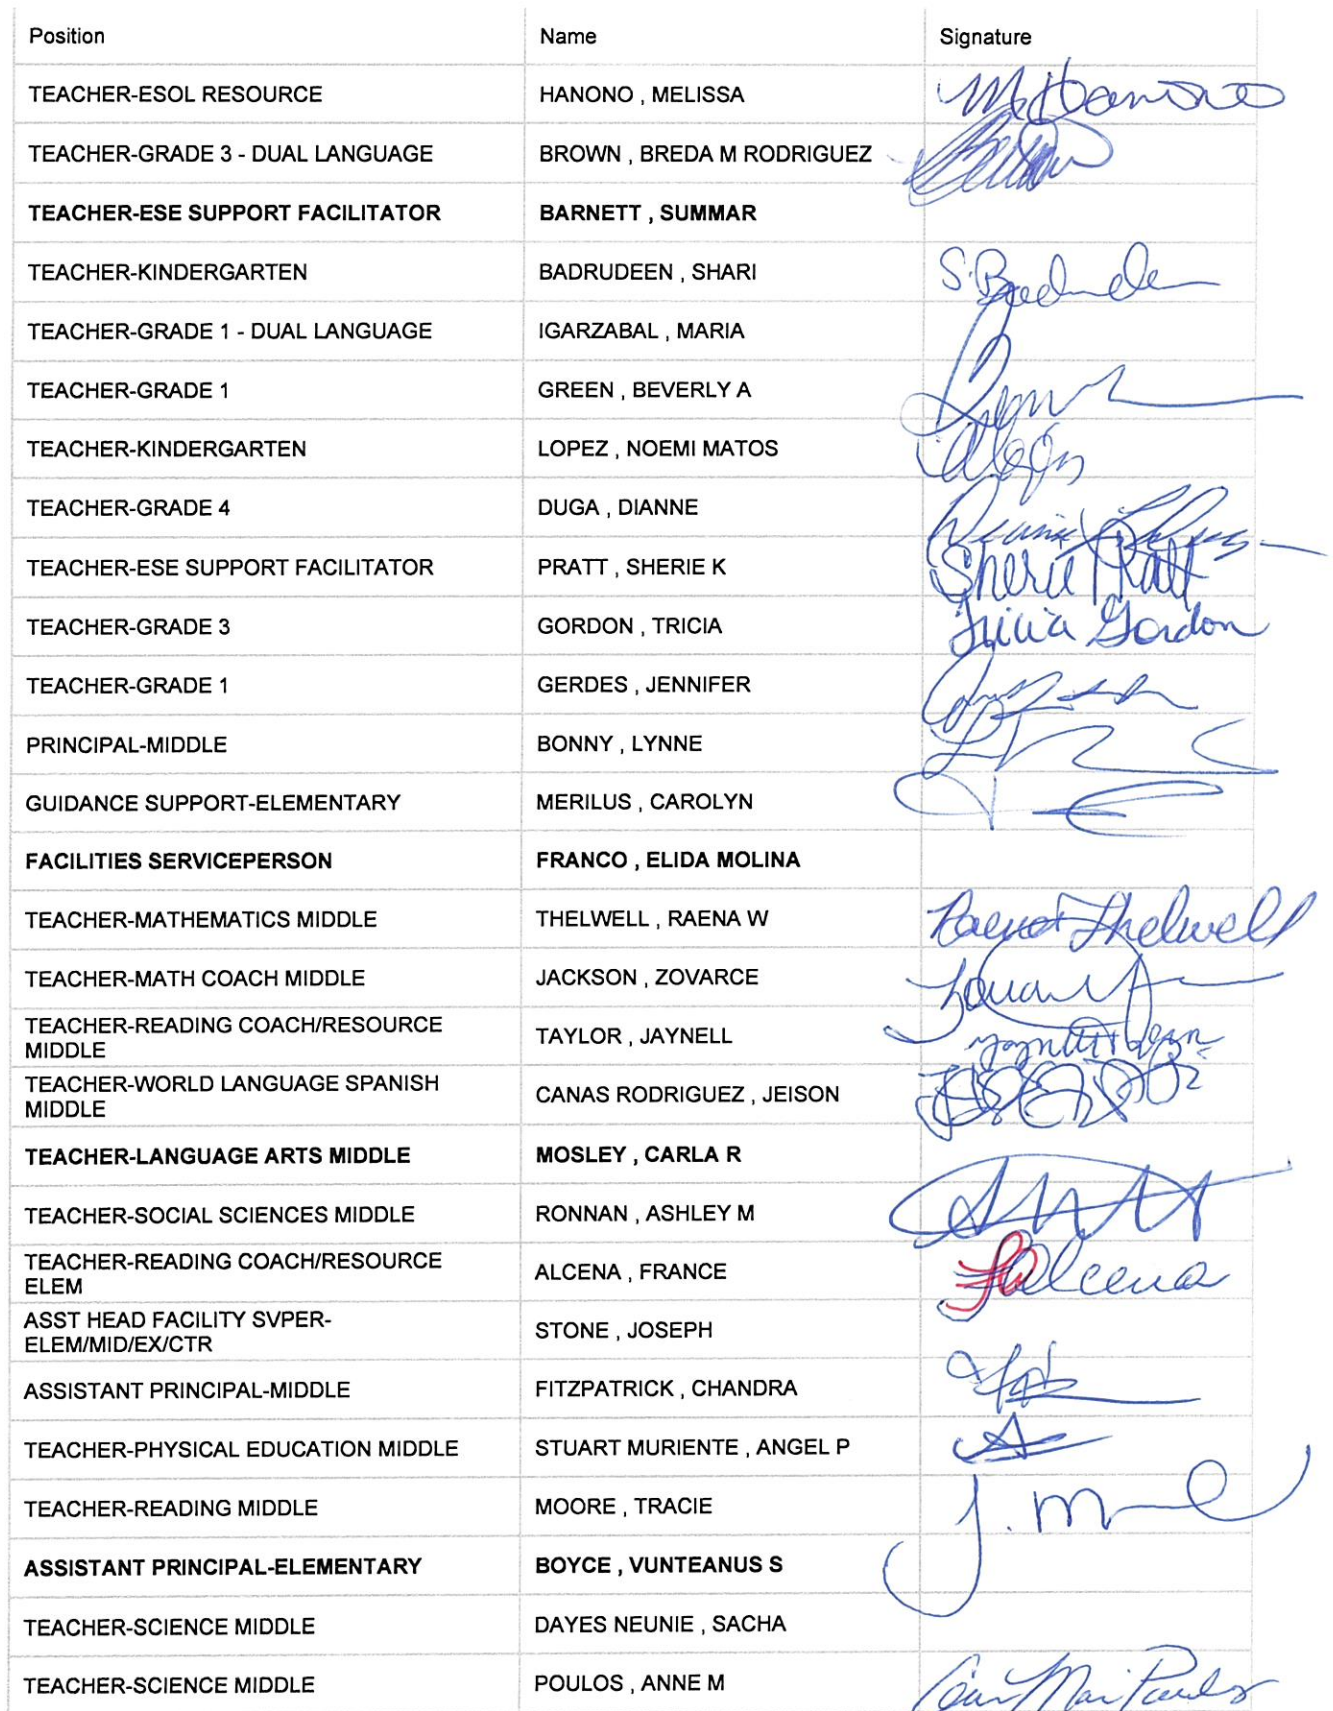 Position Name Signature
TEACHER-ESOL RESOURCE HANONO , MELISSA M Hanono
TEACHER-GRADE 3 - DUAL LANGUAGE BROWN , BREDA M RODRIGUEZ
TEACHER-ESE SUPPORT FACILITATOR BARNETT , SUMMAR
TEACHER-KINDERGARTEN BADRUDEEN , SHARI
TEACHER-GRADE 1 - DUAL LANGUAGE IGARZABAL , MARIA
TEACHER-GRADE 1 GREEN , BEVERLY A
TEACHER-KINDERGARTEN LOPEZ , NOEMI MATOS
TEACHER-GRADE 4 DUGA , DIANNE
TEACHER-ESE SUPPORT FACILITATOR PRATT , SHERIE K Sherie Pratt
TEACHER-GRADE 3 GORDON , TRICIA Tricia Gordon
TEACHER-GRADE 1 GERDES , JENNIFER
PRINCIPAL-MIDDLE BONNY , LYNNE
GUIDANCE SUPPORT-ELEMENTARY MERILUS , CAROLYN
FACILITIES SERVICEPERSON FRANCO , ELIDA MOLINA
TEACHER-MATHEMATICS MIDDLE THELWELL , RAENA W Raena Thelwell
TEACHER-MATH COACH MIDDLE JACKSON , ZOVARCE
TEACHER-READING COACH/RESOURCE
MIDDLE TAYLOR , JAYNELL
TEACHER-WORLD LANGUAGE SPANISH
MIDDLE CANAS RODRIGUEZ , JEISON
TEACHER-LANGUAGE ARTS MIDDLE MOSLEY , CARLA R
TEACHER-SOCIAL SCIENCES MIDDLE RONNAN , ASHLEY M
TEACHER-READING COACH/RESOURCE
ELEM ALCENA , FRANCE FAlcena
ASST HEAD FACILITY SVPER-
ELEM/MID/EX/CTR STONE , JOSEPH
ASSISTANT PRINCIPAL-MIDDLE FITZPATRICK , CHANDRA
TEACHER-PHYSICAL EDUCATION MIDDLE STUART MURIENTE , ANGEL P
TEACHER-READING MIDDLE MOORE , TRACIE
ASSISTANT PRINCIPAL-ELEMENTARY BOYCE , VUNTEANUS S
TEACHER-SCIENCE MIDDLE DAYES NEUNIE , SACHA
TEACHER-SCIENCE MIDDLE POULOS , ANNE M